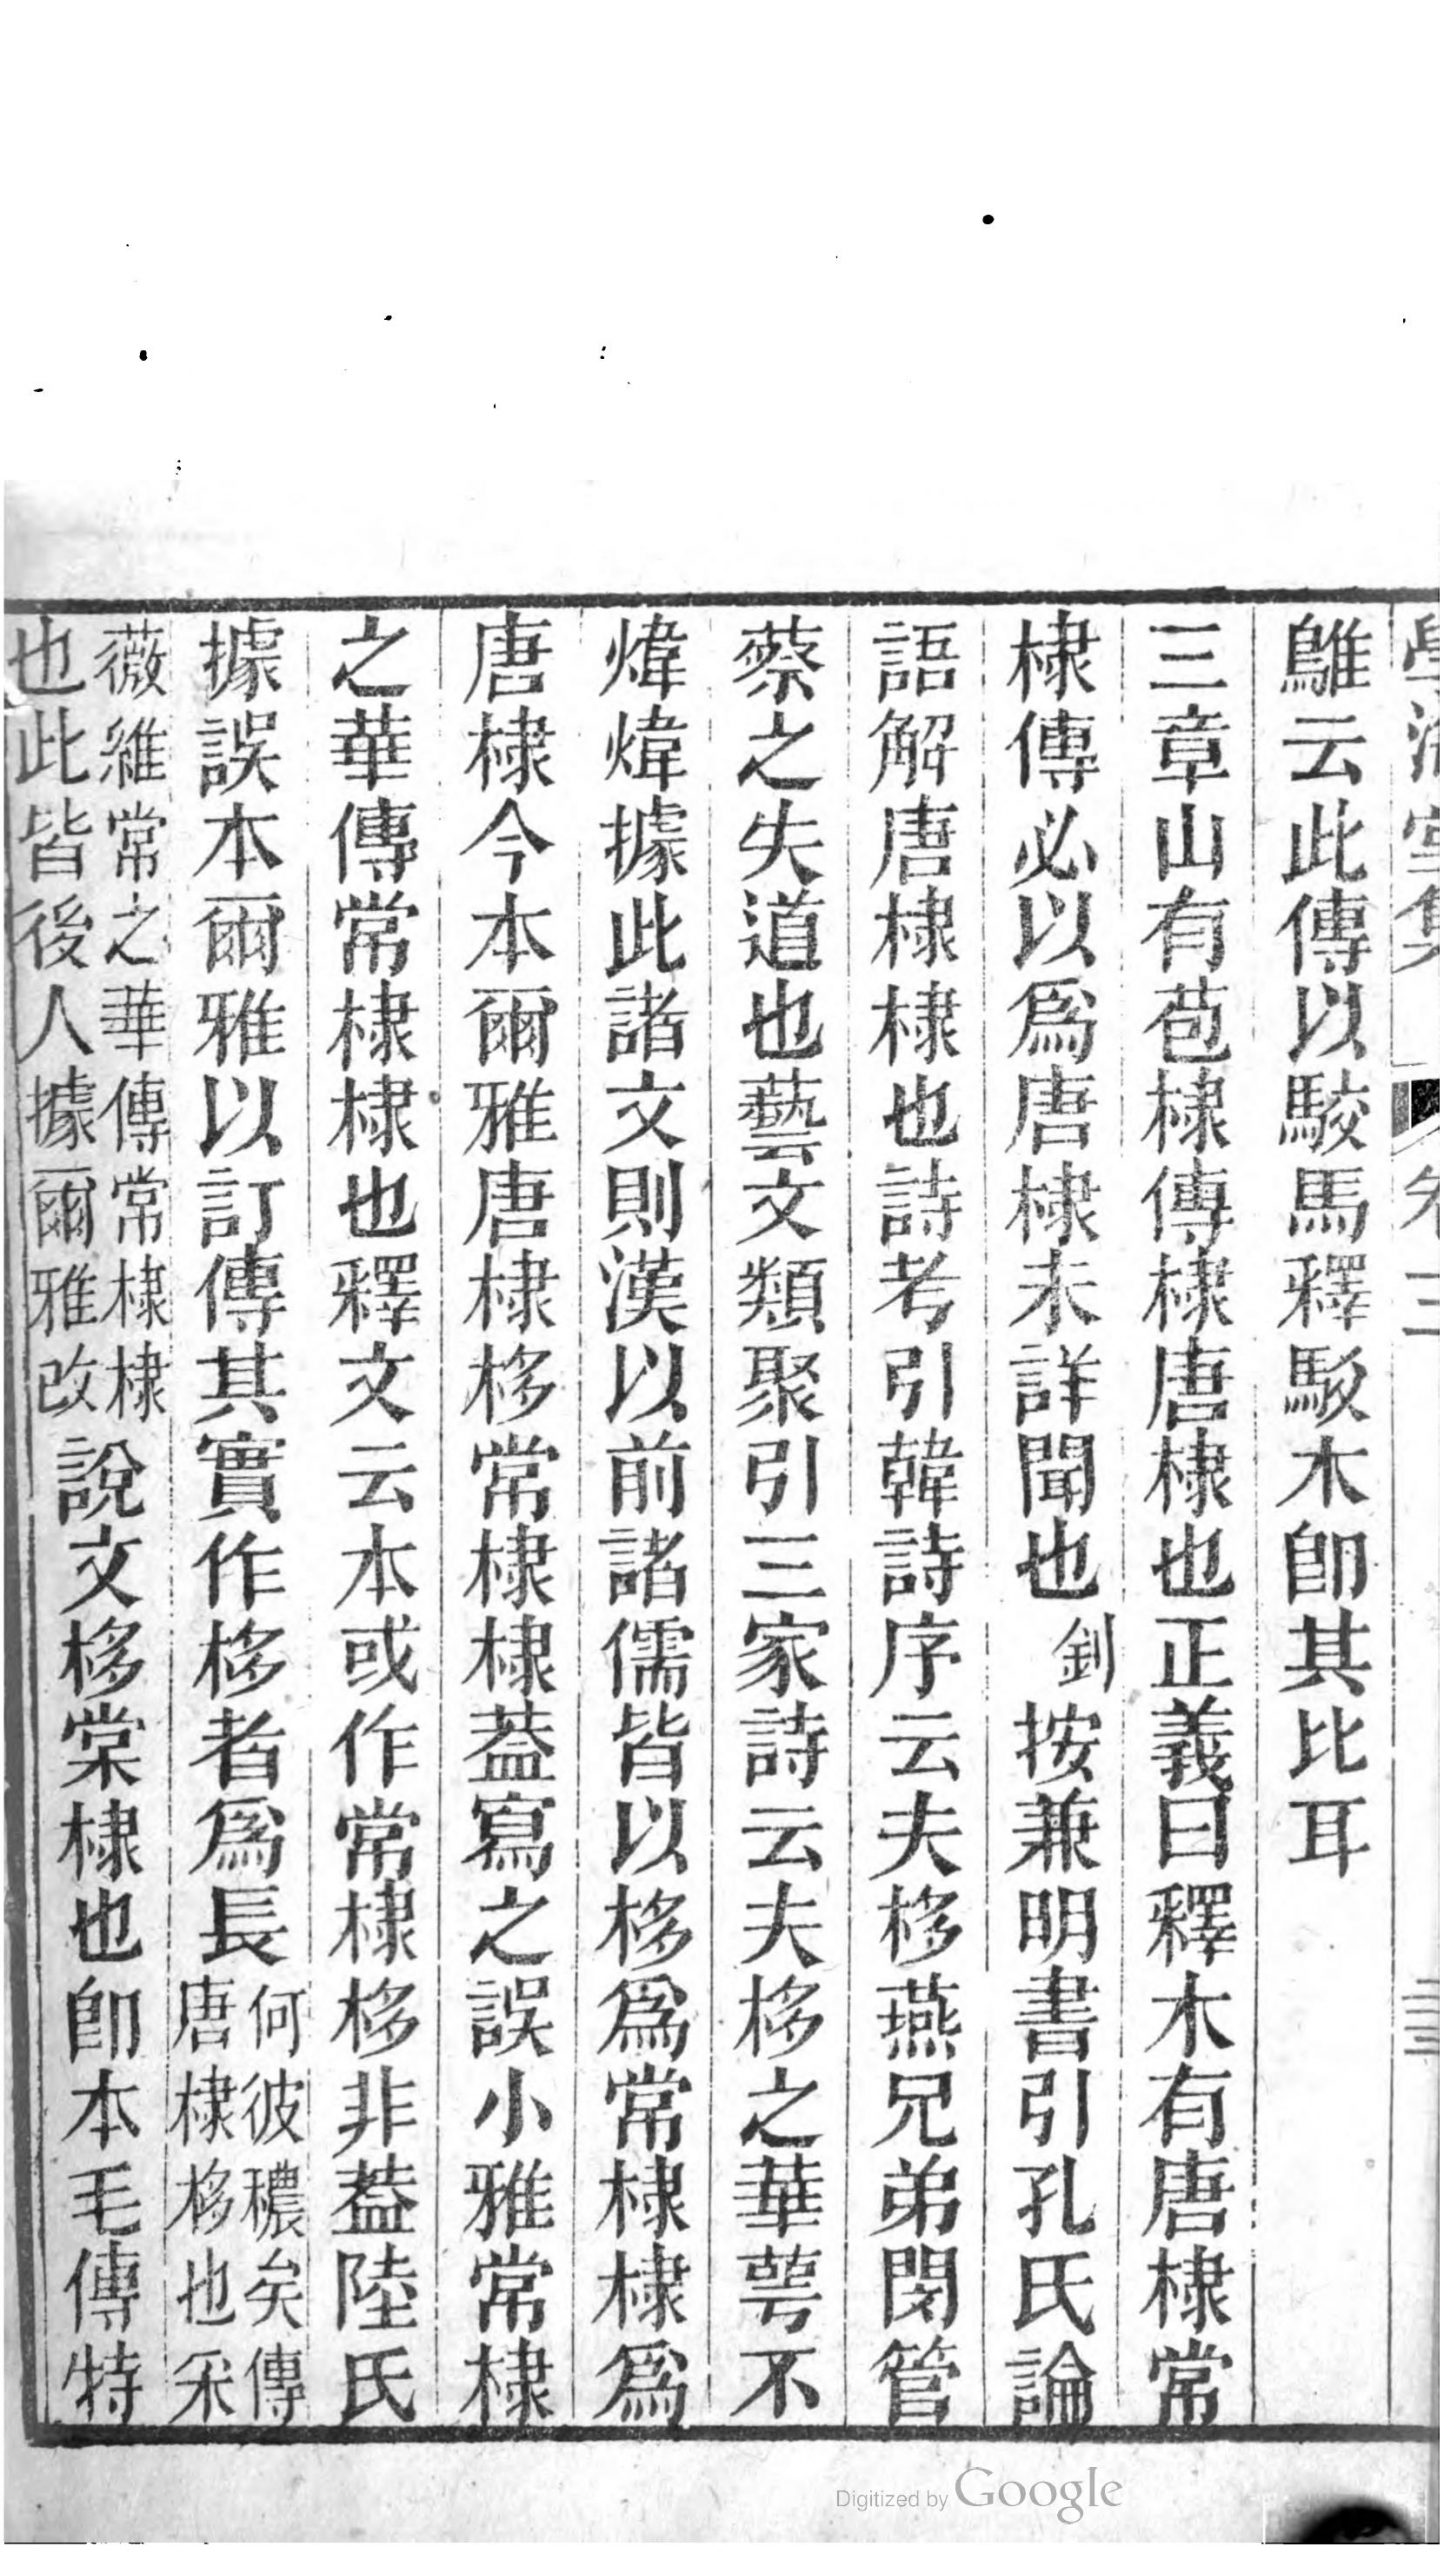 鵻云此傳以駮馬釋駮木卽其比耳
三章山有苞棣傳棣唐棣也正義曰釋木有唐棣常
棣傳必以爲唐棣未詳聞也釗按兼明書引孔氏論
語解唐棣棣也詩考引韓詩序云夫栘燕兄弟閔管
蔡之失道也藝文類聚引三家詩云夫栘之華萼不
煒煒據此諸文則漢以前諸儒皆以栘爲常棣棣爲
唐棣今本爾雅唐棣栘常棣棣葢寫之誤小雅常棣
之華傳常棣棣也釋文云本或作常棣栘非葢陸氏
據誤本爾雅以訂傳其實作栘者爲長何彼穠矣傳
唐棣栘也采
薇維常之華傳常棣棣
也此皆後人據爾雅改說文栘棠棣也卽本毛傳特
Digitized by Google